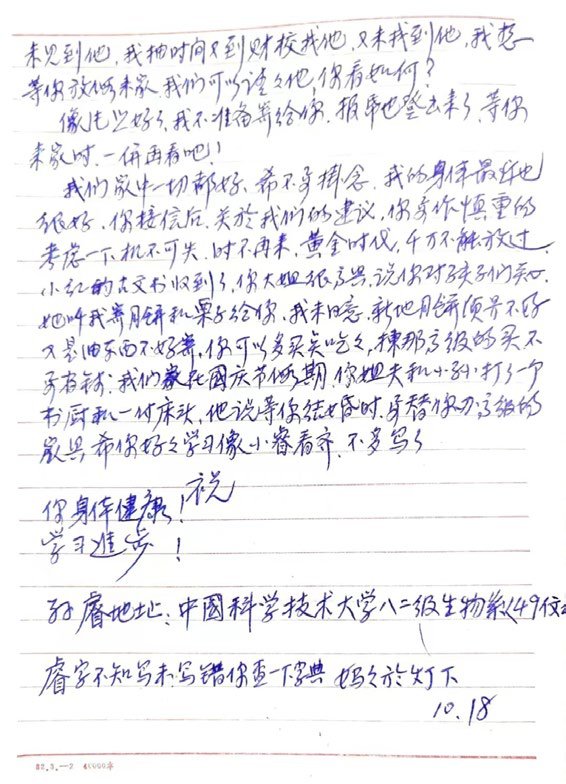 未见到他，我抽时间又到财校找他，又未找到他，我想
等你放假来家，我们可以谈々他，你看如何？
像片照好了，我不准备寄给你，报库也登出来了，等你
来家时，一併再看吧！
我们家中一切都好，希不要掛念，我的身体最近也
很好，你接信后，关於我们的建议，你要作慎重的
考虑一下，机不可失，时不再来，黄金时代，千万不能放过，
小红的古文书收到了，你大姐很高兴，说你对孩子们关心，
她叫我寄月餅和栗子给你，我未同意，新地月餅质量不好
又是油东西不好寄，你可以多买点吃々，揀那高级的买不
要省钱，我们家在国庆节假期，你姐夫和小孙打了一个
书厨和一付床头，他说等你结婚时，要替你办高级的
家具，希你好々学习像小睿看齐，不多写了
祝
你身体健康！
学习进步！
孙睿地址：中國科学技术大学八二级生物系(49信
睿字不知写未写错你查一下字典 妈々於灯下
10.18
82.3.—2 40000本